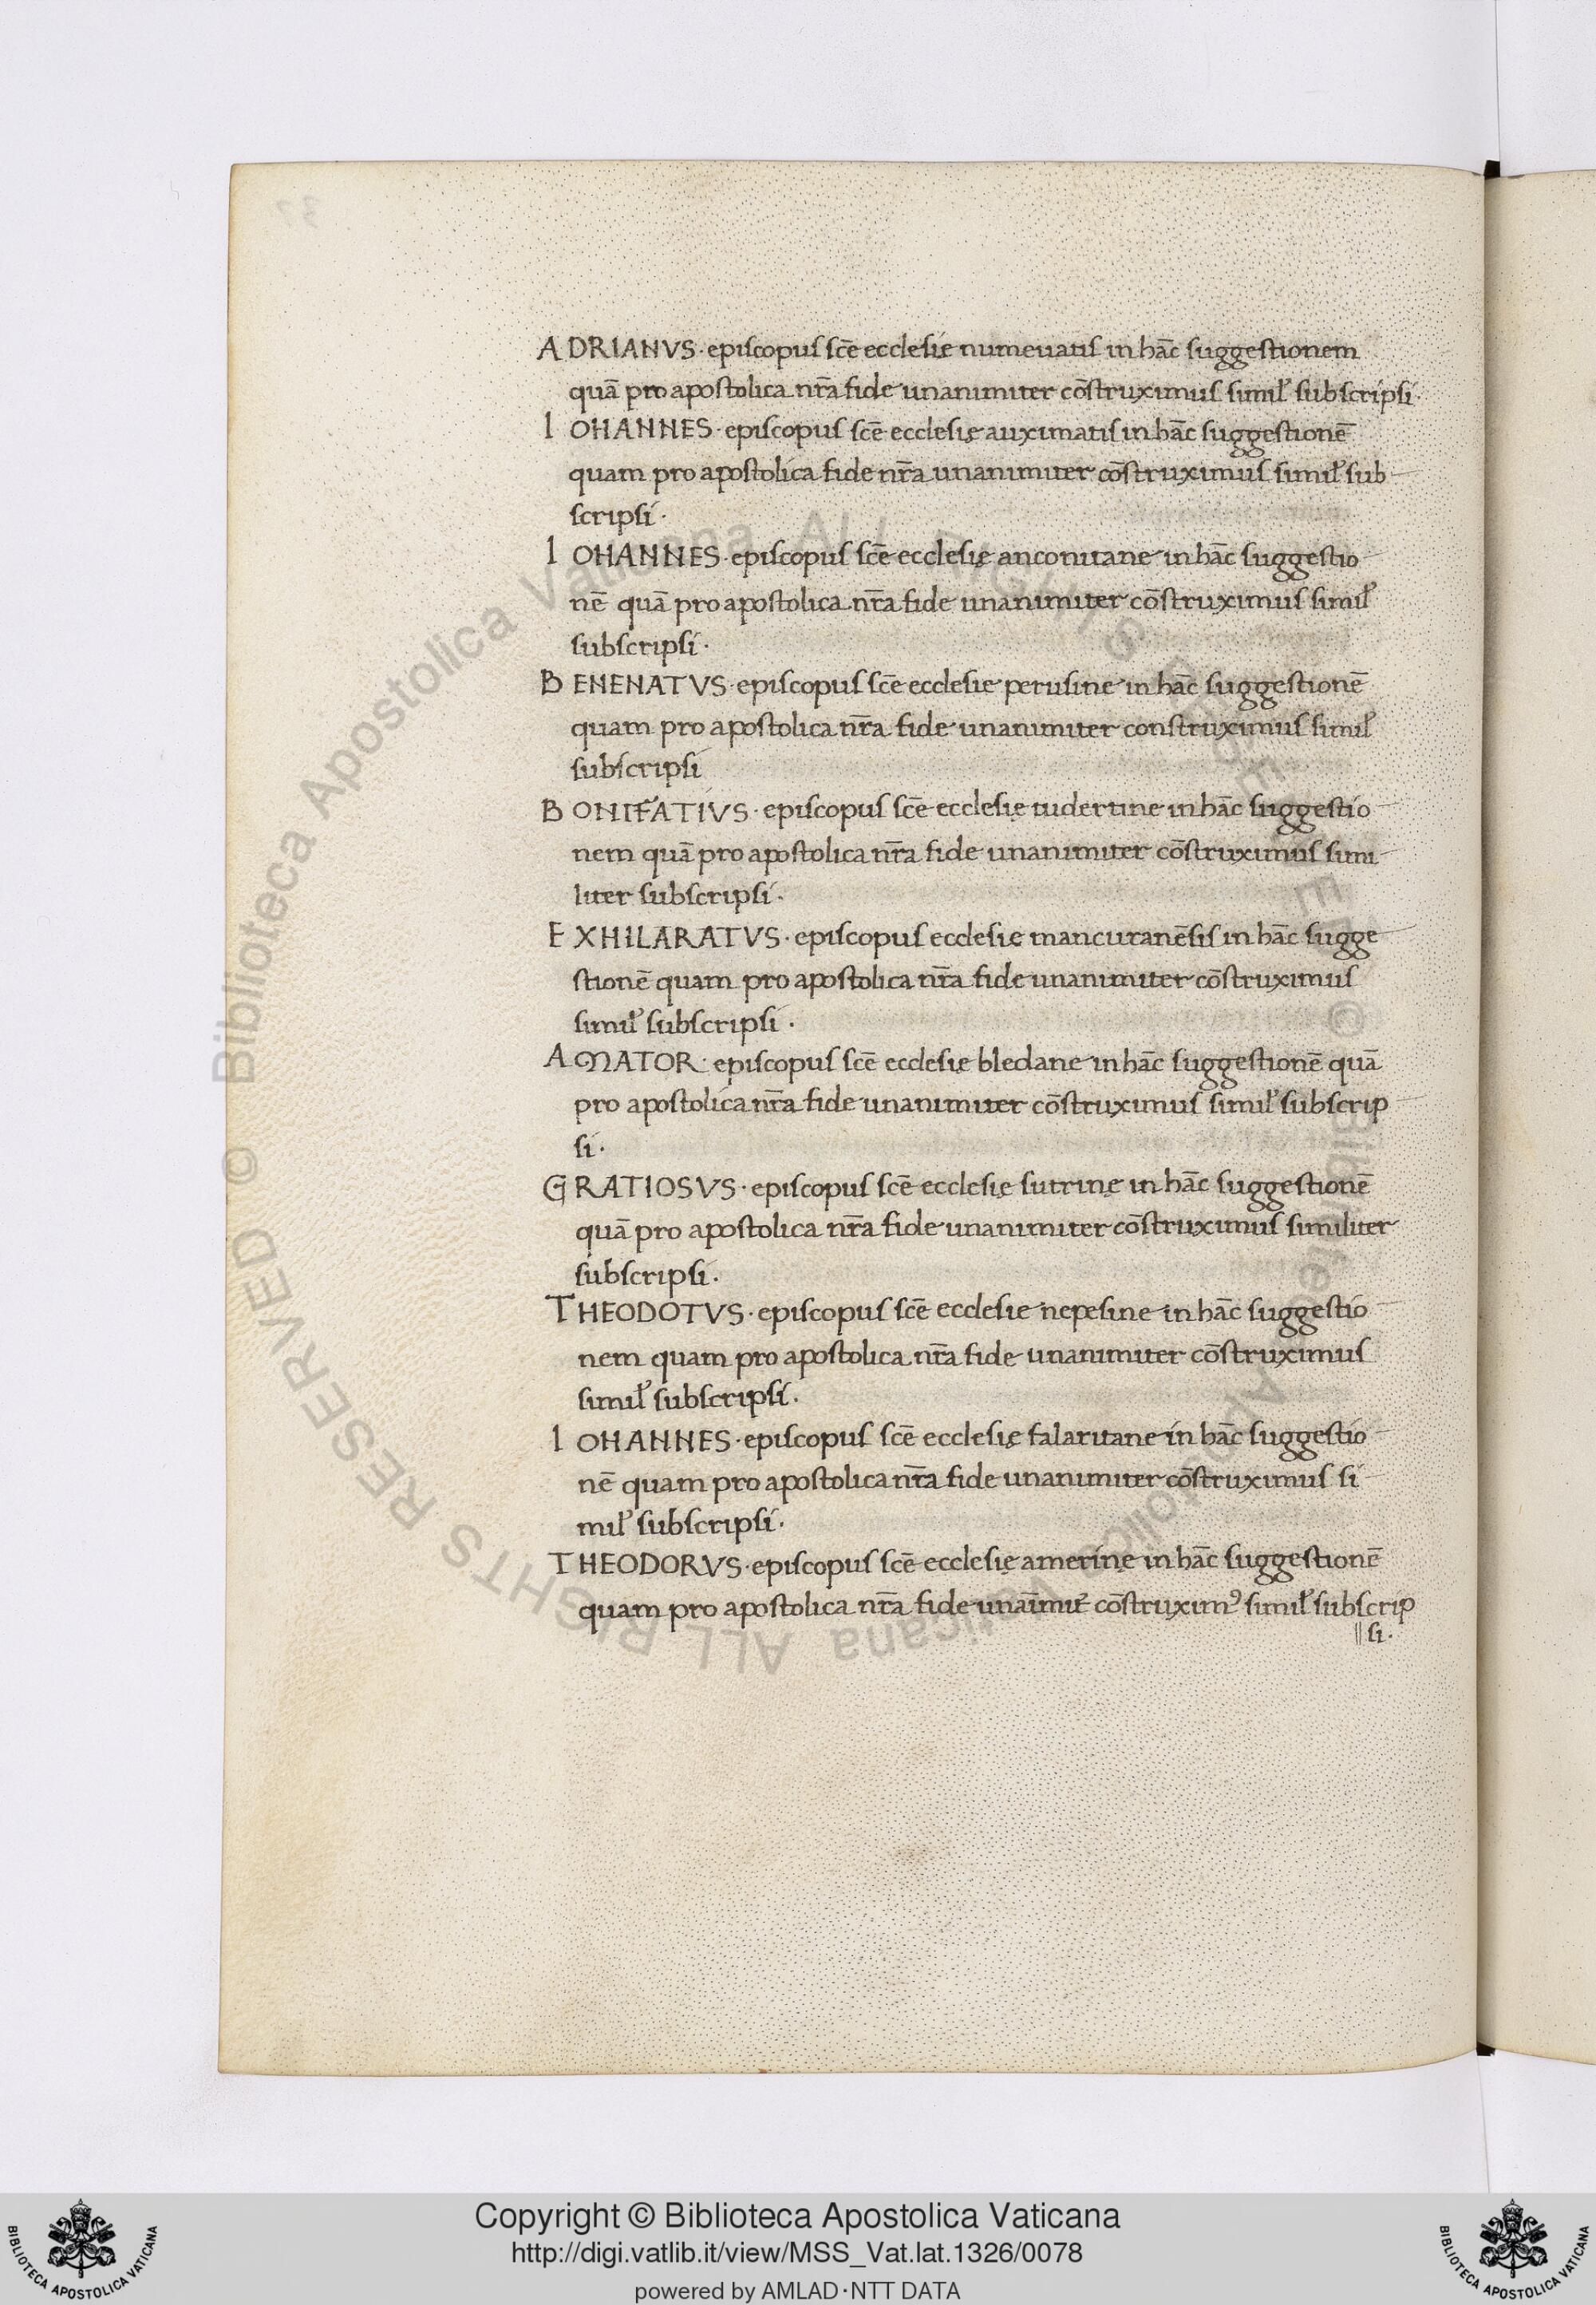 ADRIANVS · episcopus scē ecclesie numeuatis in hāc suggestionem
quā pro apostolica nr̄a fide unanimiter cōstruximus simil᾽ subscripsi ·
IOHANNES · episcopus scē ecclesię auximatis in hāc suggestionē
quam pro apostolica fide nr̄a unanimiter cōstruximus simil᾽ sub
scripsi ·
IOHANNES · episcopus scē ecclesię anconitane in hāc suggestio
nē quā pro apostolica nr̄a fide unanimiter cōstruximus simil᾽
subscripsi ·
BENENATVS · episcopus scē ecclesie perusine in hāc suggestionē
quam pro apostolica nr̄a fide unanimiter construximus simil᾽
subscripsi
BONIFATIVS · episcopus scē ecclesię tudertine in hāc suggestio
nem quā pro apostolica nr̄a fide unanimiter cōstruximus simi
liter subscripsi ·
EXHILARATVS · episcopus ecclesię mancuranēsis in hāc sugge
stionē quam pro apostolica nr̄a fide unanimiter cōstruximus
simil᾽ subscripsi ·
AMATOR · episcopus scē ecclesię bledane in hāc suggestionē quā
pro apostolica nr̄a fide unanimiter cōstruximus simil᾽ subscrip
si ·
GRATIOSVS · episcopus scē ecclesię sutrinę in hāc suggestionē
quā pro apostolica nr̄a fide unanimiter cōstruximus similiter
subscripsi ·
THEODOTVS · episcopus scē ecclesie nepesine in hāc suggestio
nem quam pro apostolica nr̄a fide unanimiter cōstruximus
simil᾽ subscripsi ·
IOHANNES · episcopus scē ecclesię falaritane in hāc suggestio
nē quam pro apostolica nr̄a fide unanimiter cōstruximus si
mil᾽ subscripsi ·
THEODORVS · episcopus scē ecclesię amerinę in hāc suggestionē
quam pro apostolica nr̄a fide unaīmit᾽ cōstruximꝰ simil᾽ subscrip
‖ si ·
© Biblioteca Apostolica Vaticana ALL RIGHTS RESERVED © Biblioteca Apostolica Vaticana ALL RIGHTS RESERVED
Copyright © Biblioteca Apostolica Vaticana
http://digi.vatlib.it/view/MSS_Vat.lat.1326/0078
powered by AMLAD·NTT DATA
BIBLIOTECA APOSTOLICA VATICANA
BIBLIOTECA APOSTOLICA VATICANA